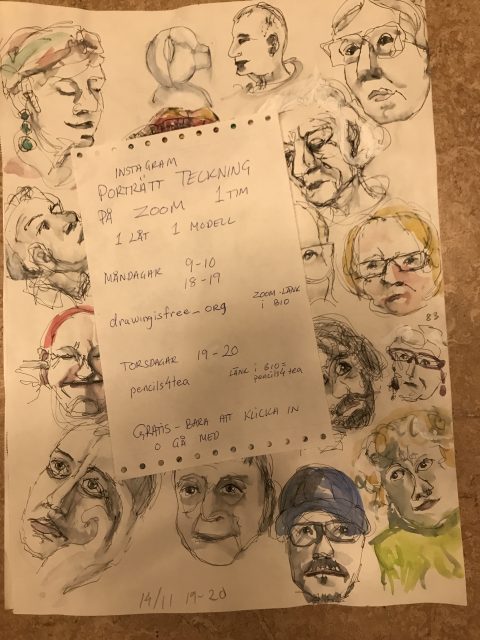 INSTAGRAM
PORTRÄTT TECKNING
PÅ ZOOM 1 TIM
1 LÅT 1 MODELL
MÅNDAGAR 9-10
18-19
drawingisfree_org ZOOM-LÄNK
i BIO
TORSDAGAR 19-20
pencils4tea LÄNK i BIO=
pencils4tea
GRATIS - BARA ATT KLICKA IN
O GÅ MED
83
14/11 19-20